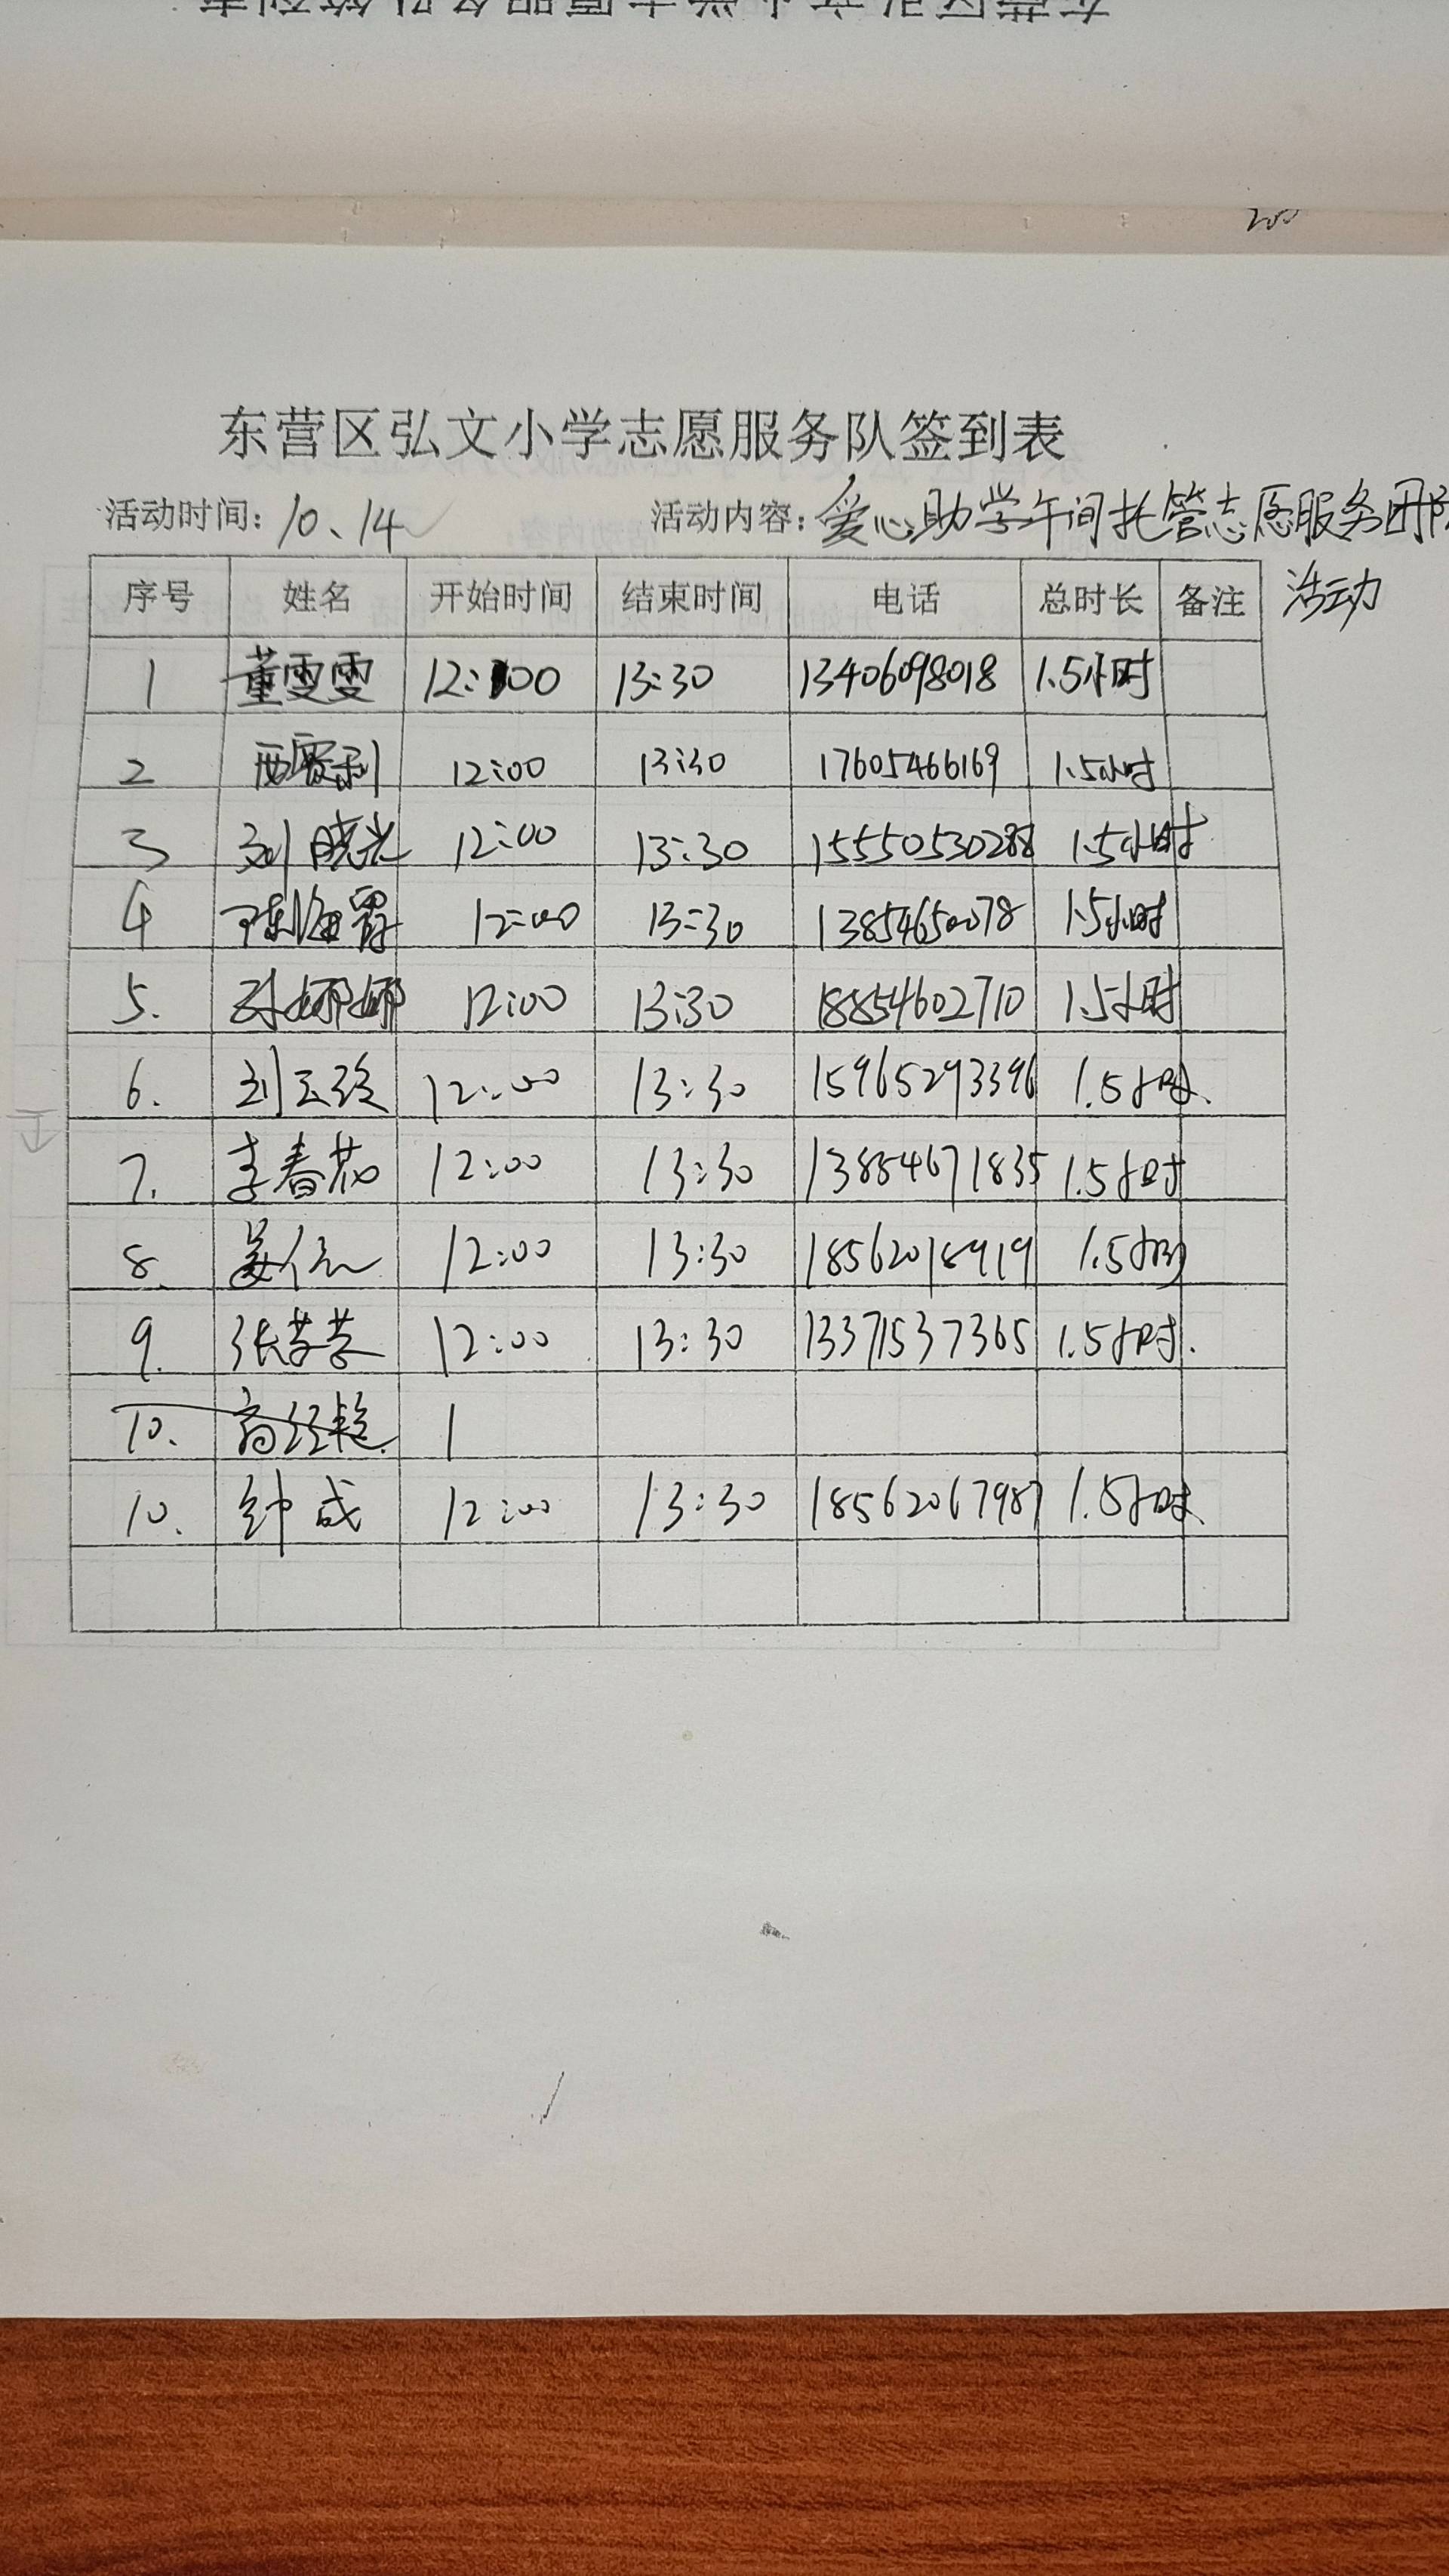 东营区弘文小学志愿服务队签到表
活动时间：10、14 活动内容：爱心助学午间托管志愿服务团队
活动
序号 姓名 开始时间 结束时间 电话 总时长 备注
1 董雯雯 12:00 13:30 13406098018 1.5小时
2 12:00 13:30 17605466169 1.5小时
3 刘晓光 12:00 13:30 15550530288 1.5小时
4 陈海霞 12:00 13:30 13854650078 1.5小时
5. 孙娜娜 12:00 13:30 18854602710 1.5小时
6. 刘玉玲 12:00 13:30 15965293396 1.5小时.
7. 李春花 12:00 13:30 13854671835 1.5小时
8. 12:00 13:30 18562018919 1.5小时
9. 张苦苦 12:00 13:30 13371537365 1.5小时.
10. 商经艳. 1
10. 钟成 12:00 13:30 18562067987 1.5小时.